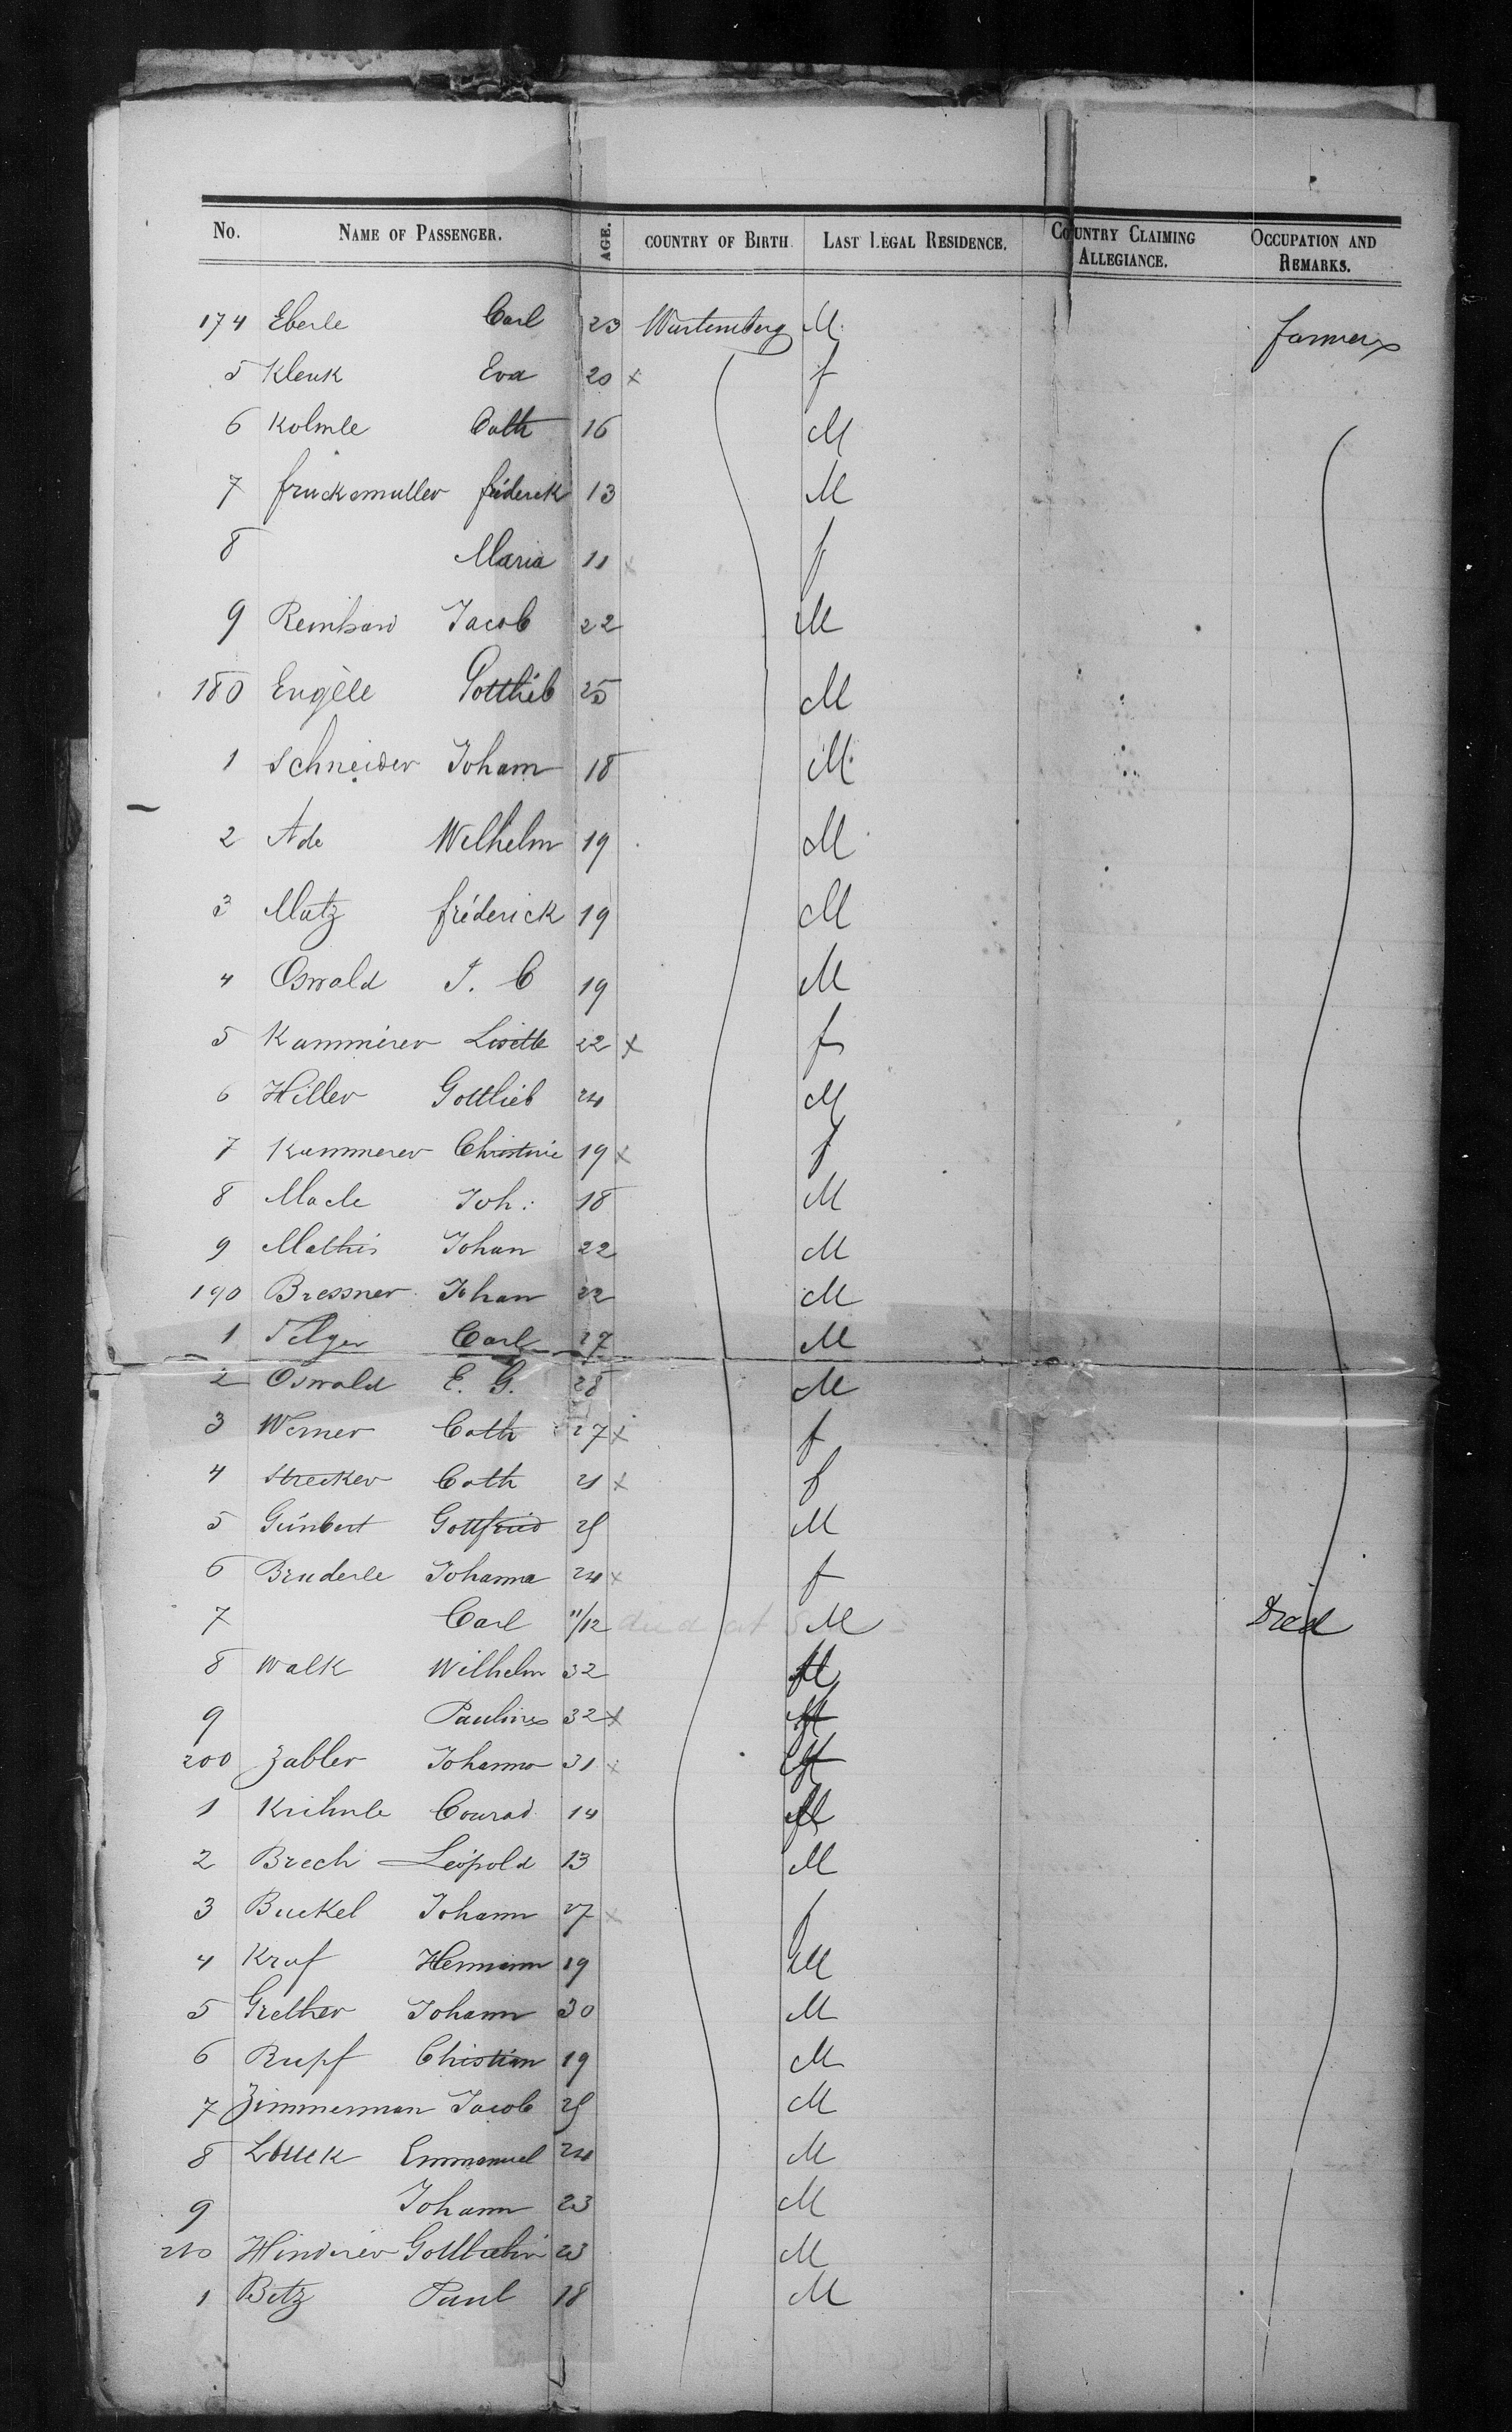 No. NAME OF PASSENGER. AGE. COUNTRY OF BIRTH. LAST LEGAL RESIDENCE. COUNTRY CLAIMING ALLEGIANCE. OCCUPATION AND REMARKS.
174 Eberle Carl 23 Wurtemberg M. farmer
5 Klenk Eva 20 x f
6 Kolmle Cath 16 M
7 fruckemuller fréderick 13 M
8 Maria 11 x f
9 Reinhard Jacob 22 M
180 Engèle Gottlieb 25 M
1 Schneider Johann 18 M
2 Ade Wilhelm 19 M
3 Matz fréderick 19 M
4 Oswald J. C 19 M
5 Kammérer Lisette 22 x f
6 Hiller Gottlieb 24 M
7 Kammerer Christine 19 x f
8 Macle Joh: 18 M
9 Mathis Johan 22 M
190 Bressner Johan 22 M
1 Carl 27 M
2 Oswald E. G. 28 M
3 Werner Cath 27 x f
4 Strecker Cath 21 x f
5 Gottfried 25 M
6 Bruderle Johanna 24 x f
7 Carl 11/12 died at M Died
8 Walk Wilhelm 32 M
9 Pauline 32 x f
200 Zabler Johanna 31 x f
1 Conrad 14 M
2 Brech Léopold 13 M
3 Buckel Johann 27 x f
4 Kraf Hermann 19 M
5 Grether Johann 30 M
6 Rupf Christian 19 M
7 Zimmerman Jacob 25 M
8 Emmanuel 24 M
9 Johann 23 M
210 Hinderer 23 M
1 Betz Paul 18 M